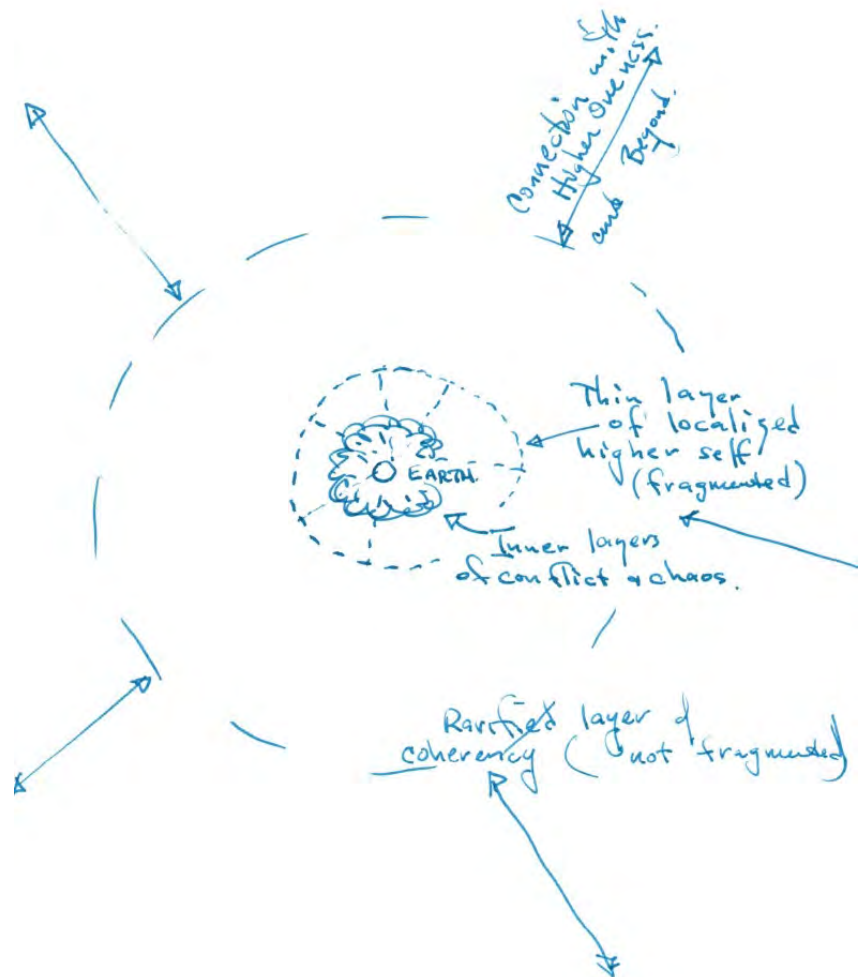 Connection with
Higher Oneness.
and Beyond.
Thin layer
of localized
higher self
(fragmented)
EARTH.
Inner layers
of conflict & chaos.
Rarified layer of
coherency (not fragmented)